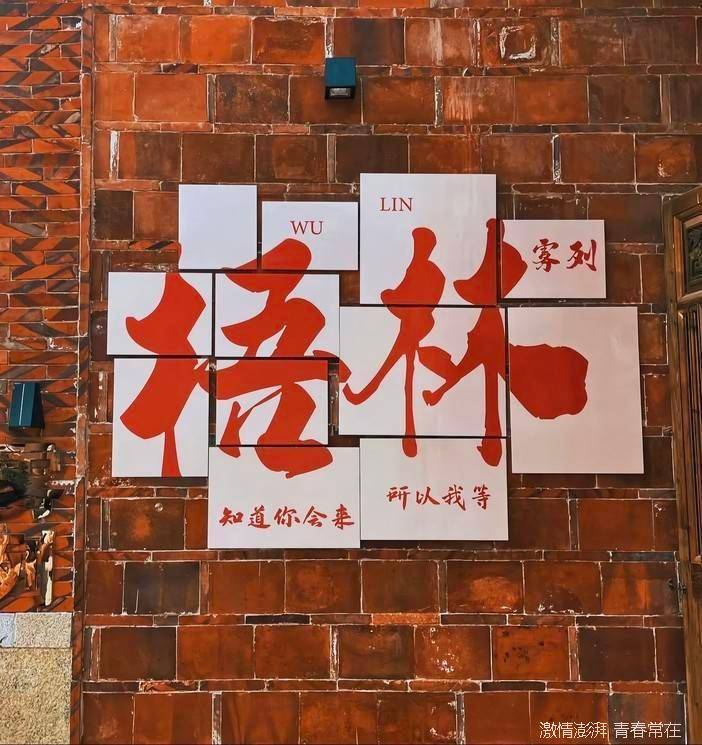 WU
LIN
梧林
知道你会来
所以我等
激情澎湃 青春常在